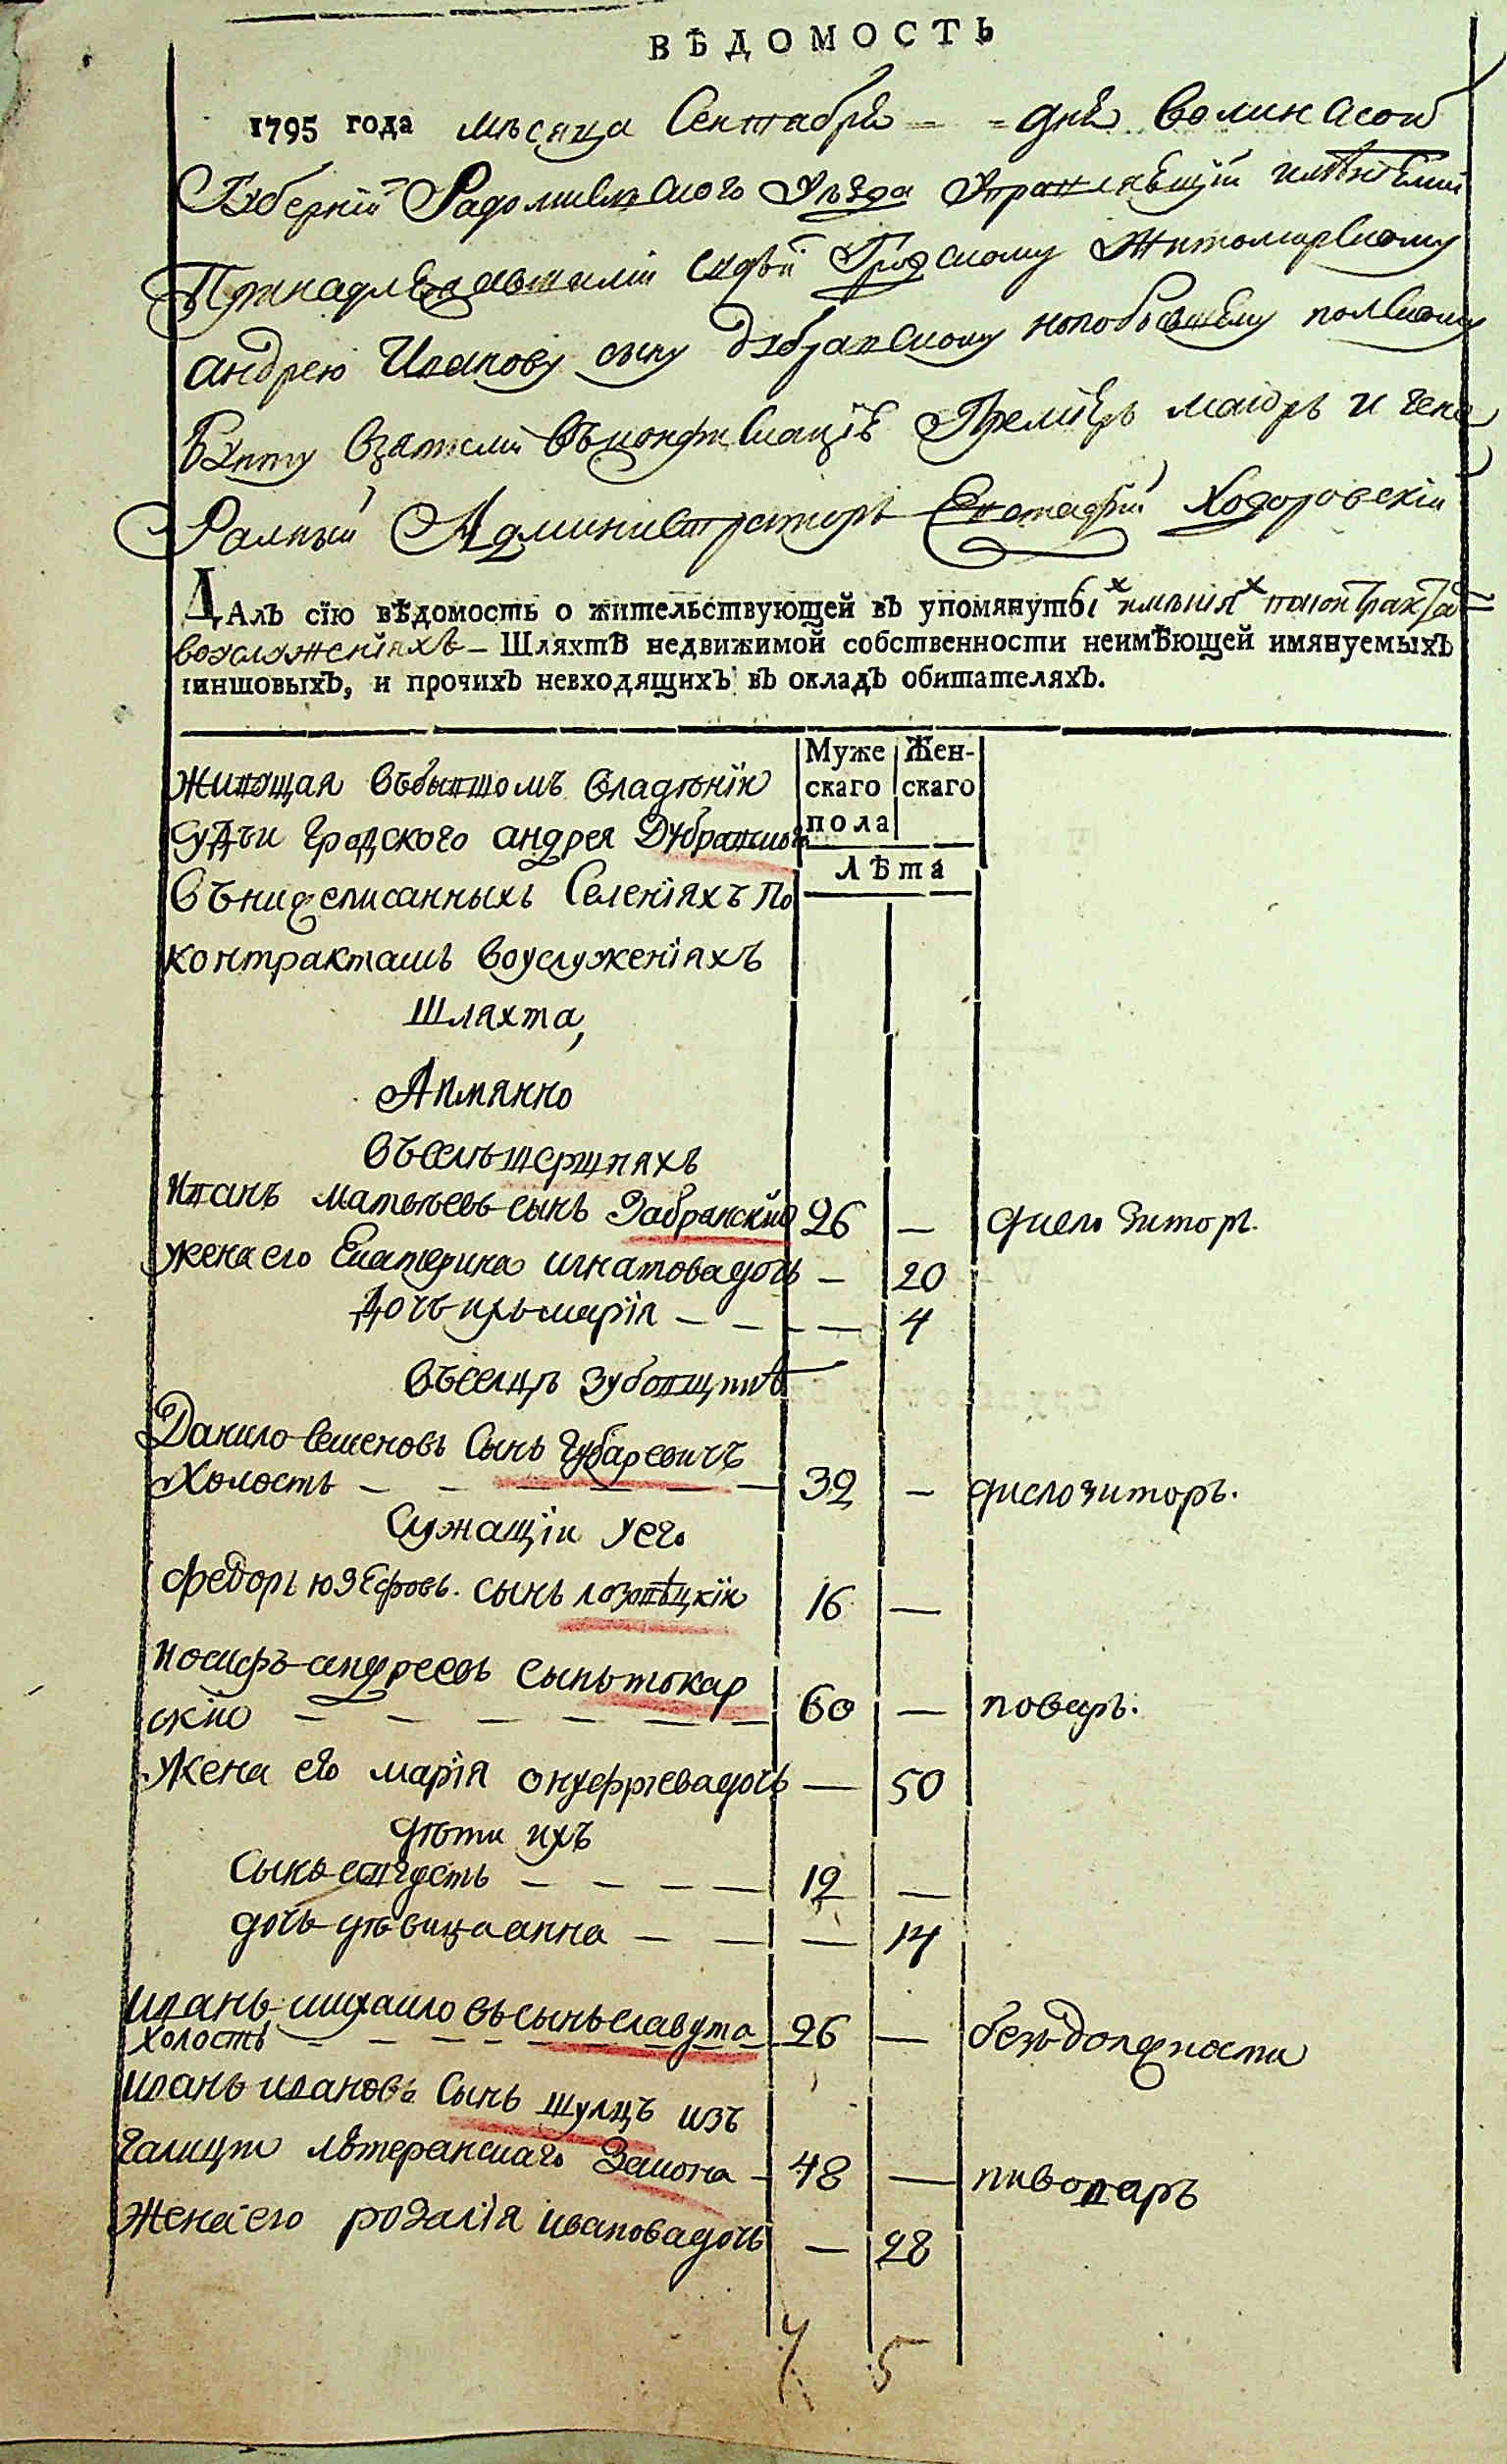 ВѢДОМОСТЬ
1795 года мѣсяца Сентября - - дня волинской
Губерніи Радомисльского Уѣзда Управляющій имѣніемъ
Принадлежавшимъ судьи Гродскому Житомирскому
андрею Иванову сыну дубравскому попобывшему полскому
Бунту взятымъ въконфискацію Премиеръ маіоръ и гене
Ралный Администраторъ Ходоровскій
ДАлъ сїю вѣдомость о жительствующей въ упомянуты х имѣнія х поконтракта
воуслуженіяхъ - Шляхтѣ недвижимой собственности неимѣющей имянуемыхъ
чиншовыхъ, и прочихъ невходящихъ въ окладъ обитателяхъ.
Муже скаго пола
Жен- скаго
Лѣта
живущая въбывшомъ владѣніи
судьи гродского андрея Дубравског
въниже писанныхъ Селеніяхъ По
контрактамъ воуслуженіяхъ
Шляхта,
Аимянно
въселѣ
иванъ матвѣевъ сынъ Забранский 26 —
жена его Екатерина игнатовадочь — 20
дочь ихъ марія — — — — 4
въселцѣ зубовщинѣ
Данило семеновъ Сынъ губаревичъ
холостъ — — — — — — 32 — дислозиторъ.
Служащіи унего
федоръ юзефовъ. сынъ лозовѣцкій 16 —
иосифъ андреевъ сынъ токар
скіи — — — — — — 60 — поваръ.
жена его марія онуфріевадочь — 50
дѣти ихъ
Сынъ августъ — — — — 12 —
дочь дѣвица анна — — — — 14
иванъ михаиловъ сынъ славута
холостъ — — — — — — 26 — безъ должности
иванъ ивановъ Сынъ шулцъ изъ
галиціи лютеранскаго Закона — 48 — пивоваръ
жена его розалія ивановадочь — 28
7 5